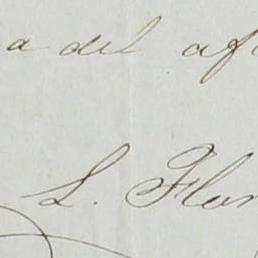 a del af
L. Flor